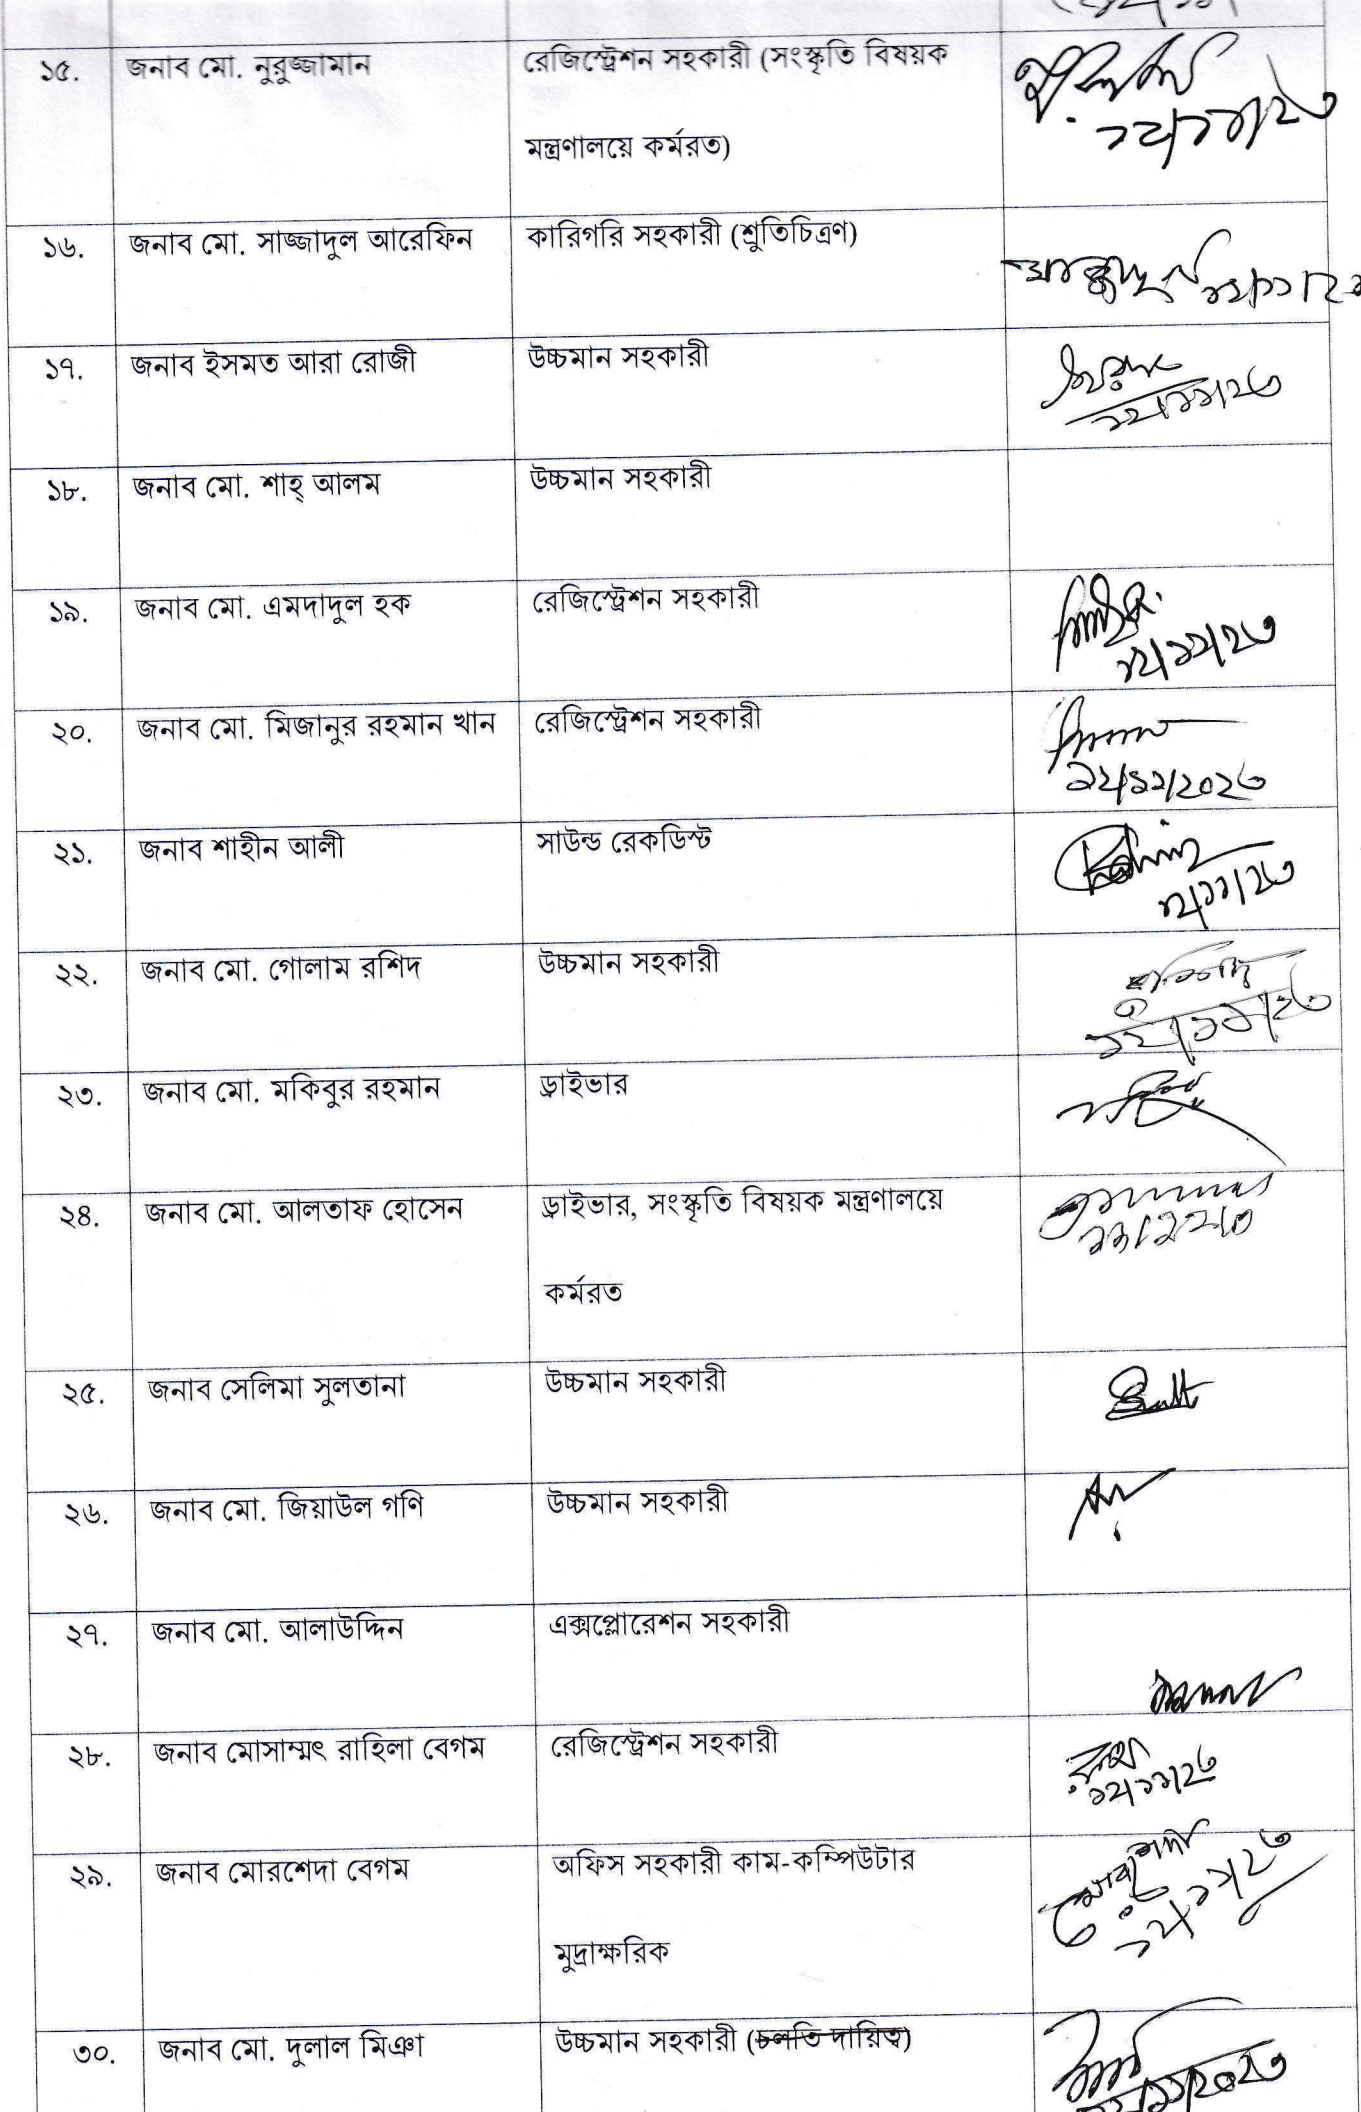 ১৫. জনাব মো. নুরুজ্জামান রেজিস্ট্রেশন সহকারী (সংস্কৃতি বিষয়ক
মন্ত্রণালয়ে কর্মরত)
১৬. জনাব মো. সাজ্জাদুল আরেফিন কারিগরি সহকারী (শ্রুতিচিত্রণ)
১৭. জনাব ইসমত আরা রোজী উচ্চমান সহকারী
১৮. জনাব মো. শাহ্ আলম উচ্চমান সহকারী
১৯. জনাব মো. এমদাদুল হক রেজিস্ট্রেশন সহকারী
১২/১১/২৩
২০. জনাব মো. মিজানুর রহমান খান রেজিস্ট্রেশন সহকারী
১২/১১/২০২৩
২১. জনাব শাহীন আলী সাউন্ড রেকর্ডিস্ট
১২/১১/২৩
২২. জনাব মো. গোলাম রশিদ উচ্চমান সহকারী
১২/১১/২৩
২৩. জনাব মো. মকিবুর রহমান ড্রাইভার
২৪. জনাব মো. আলতাফ হোসেন ড্রাইভার, সংস্কৃতি বিষয়ক মন্ত্রণালয়ে
কর্মরত
২৫. জনাব সেলিমা সুলতানা উচ্চমান সহকারী
২৬. জনাব মো. জিয়াউল গণি উচ্চমান সহকারী
২৭. জনাব মো. আলাউদ্দিন এক্সপ্লোরেশন সহকারী
২৮. জনাব মোসাম্মৎ রাহিলা বেগম রেজিস্ট্রেশন সহকারী
১২/১১/২৩
২৯. জনাব মোরশেদা বেগম অফিস সহকারী কাম-কম্পিউটার
মুদ্রাক্ষরিক
৩০. জনাব মো. দুলাল মিঞা উচ্চমান সহকারী (চলতি দায়িত্ব)